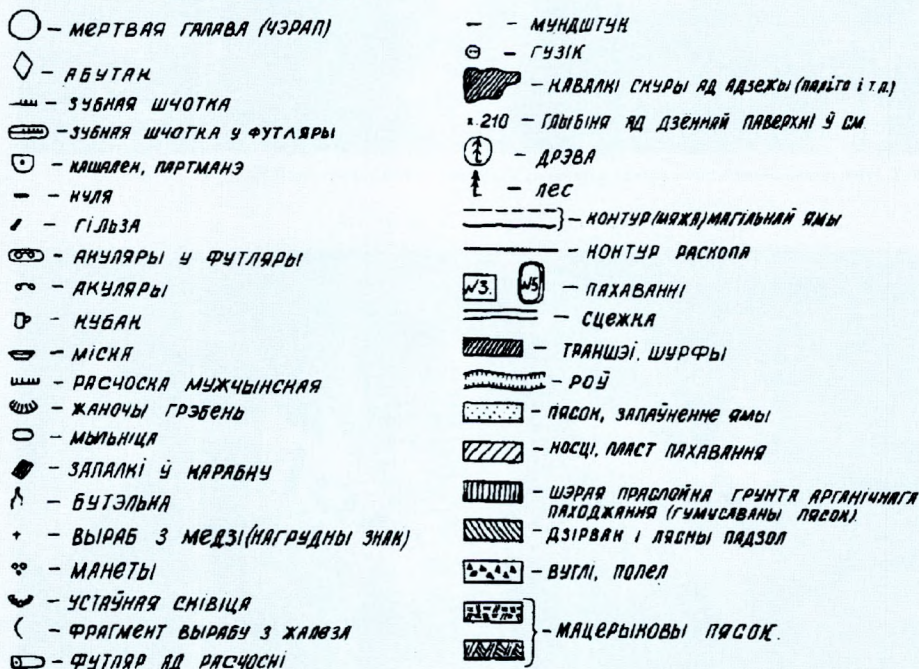 – МЕРТВАЯ ГАЛАВА (ЧЭРАП)
– АБУТАК
– ЗУБНАЯ ШЧОТКА
– ЗУБНАЯ ШЧОТКА У ФУТЛЯРЫ
– КАШАЛЕК, ПАРТМАНЭ
– КУЛЯ
– ГІЛЬЗА
– АКУЛЯРЫ У ФУТЛЯРЫ
– АКУЛЯРЫ
– КУБАК
– МІСКА
– РАСЧОСКА МУЖЧЫНСКАЯ
– ЖАНОЧЫ ГРЭБЕНЬ
– МЫЛЬНІЦА
– ЗАПАЛКІ Ў КАРАБКУ
– БУТЭЛЬКА
+ – ВЫРАБ З МЕДЗІ (НАГРУДНЫ ЗНАК)
– МАНЕТЫ
– УСТАЎНАЯ СКІВІЦА
– ФРАГМЕНТ ВЫРАБУ З ЖАЛЕЗА
– ФУТЛЯР АД РАСЧОСКІ
– МУНДШТУК
– ГУЗІК
– КАВАЛКІ СКУРЫ АД АДЗЕЖЫ (ПАЛІТО І Т.Д.)
х 210 – ГЛЫБІНЯ АД ДЗЕННАЙ ПАВЕРХНІ Ў СМ
– ДРЭВА
– ЛЕС
– КОНТУР (МЯЖА) МАГІЛЬНАЙ ЯМЫ
– КОНТУР РАСКОПА
№3. №5 – ПАХАВАННІ
– СЦЕЖКА
– ТРАНШЭІ, ШУРФЫ
– РОЎ
– ПЯСОК, ЗАПАЎНЕННЕ ЯМЫ
– КОСЦІ, ПЛАСТ ПАХАВАННЯ
– ШЭРАЯ ПРАСЛОЙКА ГРУНТА АРГАНІЧНАГА
ПАХОДЖАННЯ (ГУМУСАВАНЫ ПЯСОК).
– ДЗІРВАН І ЛЯСНЫ ПАДЗОЛ
– ВУГЛІ, ПОПЕЛ
– МАЦЕРЫКОВЫ ПЯСОК.